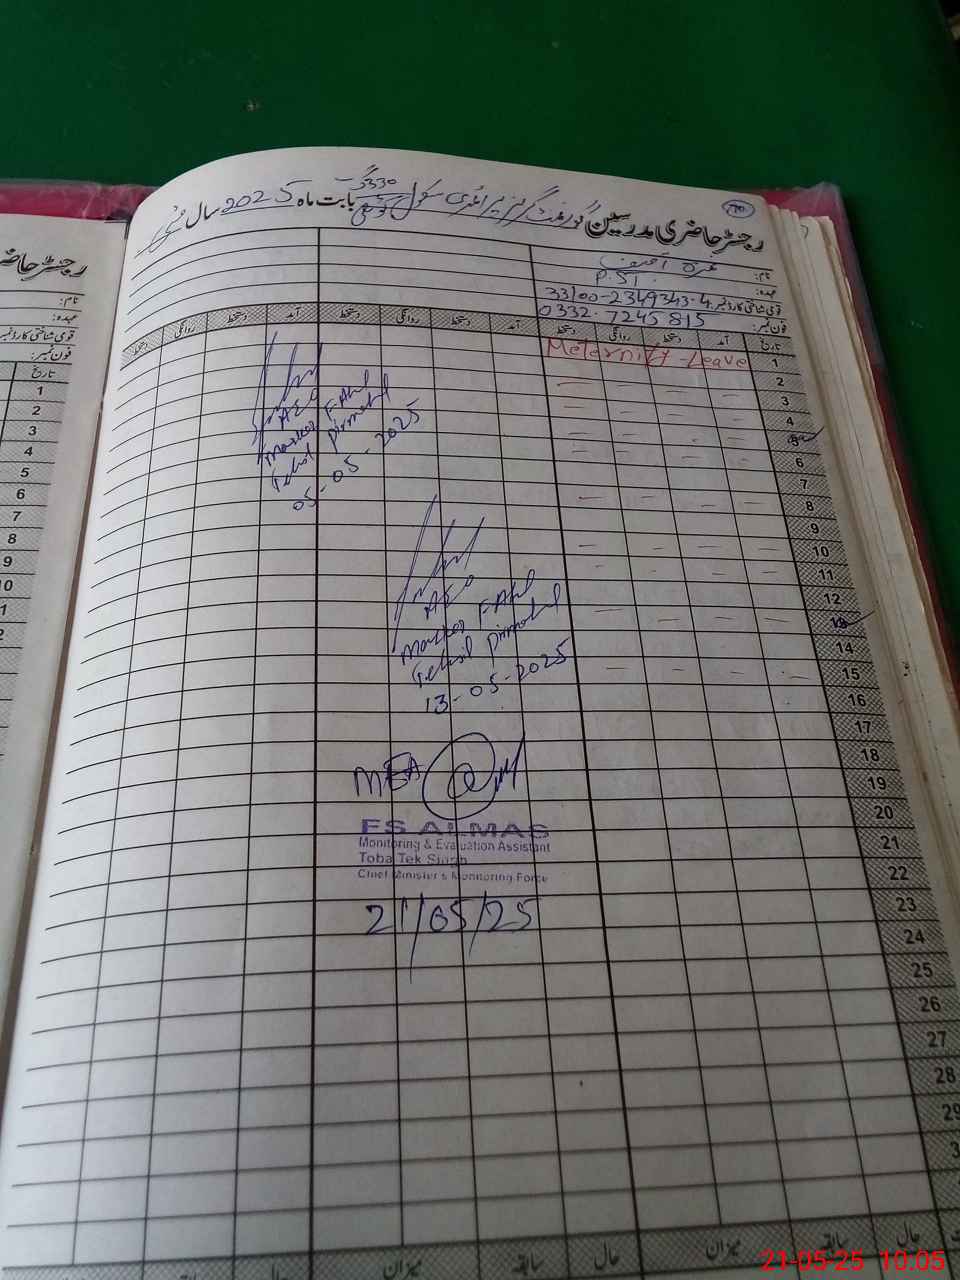 رجسٹر حاضری مدرسین گورنمنٹ گرلز پرائمری سکول 330 گ ب بابت ماہ مئی سال 2025
نام:
عہدہ: P.ST
قومی شناختی کارڈ نمبر: 33100-2349343-4
فون نمبر: 0332-7245815
تاریخ آمد دستخط روانگی دستخط آمد دستخط روانگی دستخط آمد دستخط روانگی دستخط
Meternity Leave
1
2
3
4
5
6
7
8
9
10
11
12
13
14
15
16
17
18
19
20
21
22
23
24
25
26
27
28
29
AEO
Markaz
Tehsil Pirmahal
05-05-2025
AEO
Markaz
Tehsil Pirmahal
13-05-2025
MEA
FS ALMAS
Monitoring & Evaluation Assistant
Toba Tek Singh
Chief Minister's Monitoring Force
21/05/25
حال سابقہ میزان حال سابقہ میزان
رجسٹر حاضر
نام:
عہدہ:
قومی شناختی کارڈ نمبر
فون نمبر:
تاریخ
1
2
3
4
5
6
7
8
9
10
11
12
13
14
15
21-05-25 10:05